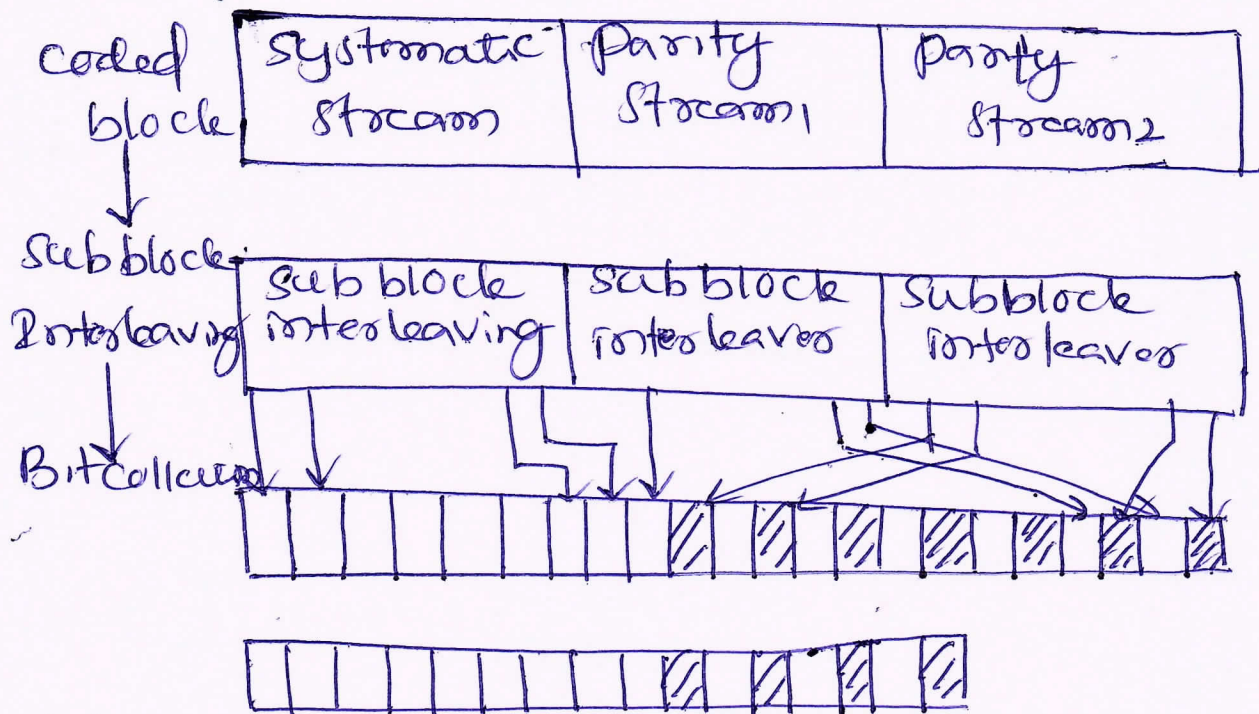 coded
block
systematic
stream
parity
stream1
parity
stream2
subblock
Interleaving
subblock
interleaving
subblock
interleaver
subblock
interleaver